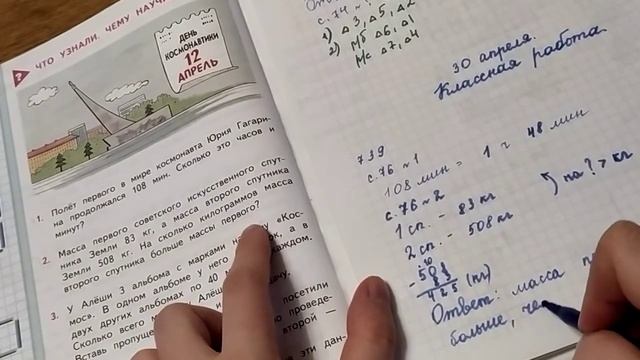 ? ЧТО УЗНАЛИ. ЧЕМУ НАУЧ
ДЕНЬ
КОСМОНАВТИКИ
12
АПРЕЛЬ
1. Полёт первого в мире космонавта Юрия Гагари-
на продолжался 108 мин. Сколько это часов и
минут?
2. Масса первого советского искусственного спут-
ника Земли 83 кг, а масса второго спутника
Земли 508 кг. На сколько килограммов масса
второго спутника больше массы первого?
3. У Алёши 3 альбома с марками на «Кос-
мос». В одном альбоме у него а в
двух других альбомах по 40 каждом.
Сколько всего Алёши
Вставь пропу посетили
прове-
второй —
эти дан-
с. 74 №
1) Δ3, Δ5, Δ2
2) Мб Δ6, Δ1
Мс Δ7, Δ4
30 апреля.
Классная работа
с. 76 №1
108 мин = 1 ч 48 мин
с. 76 №2
1 сп. - 83 кг
2 сп. - 508 кг
на ? > кг
- 508
83
425 (кг)
Ответ: масса
больше, че